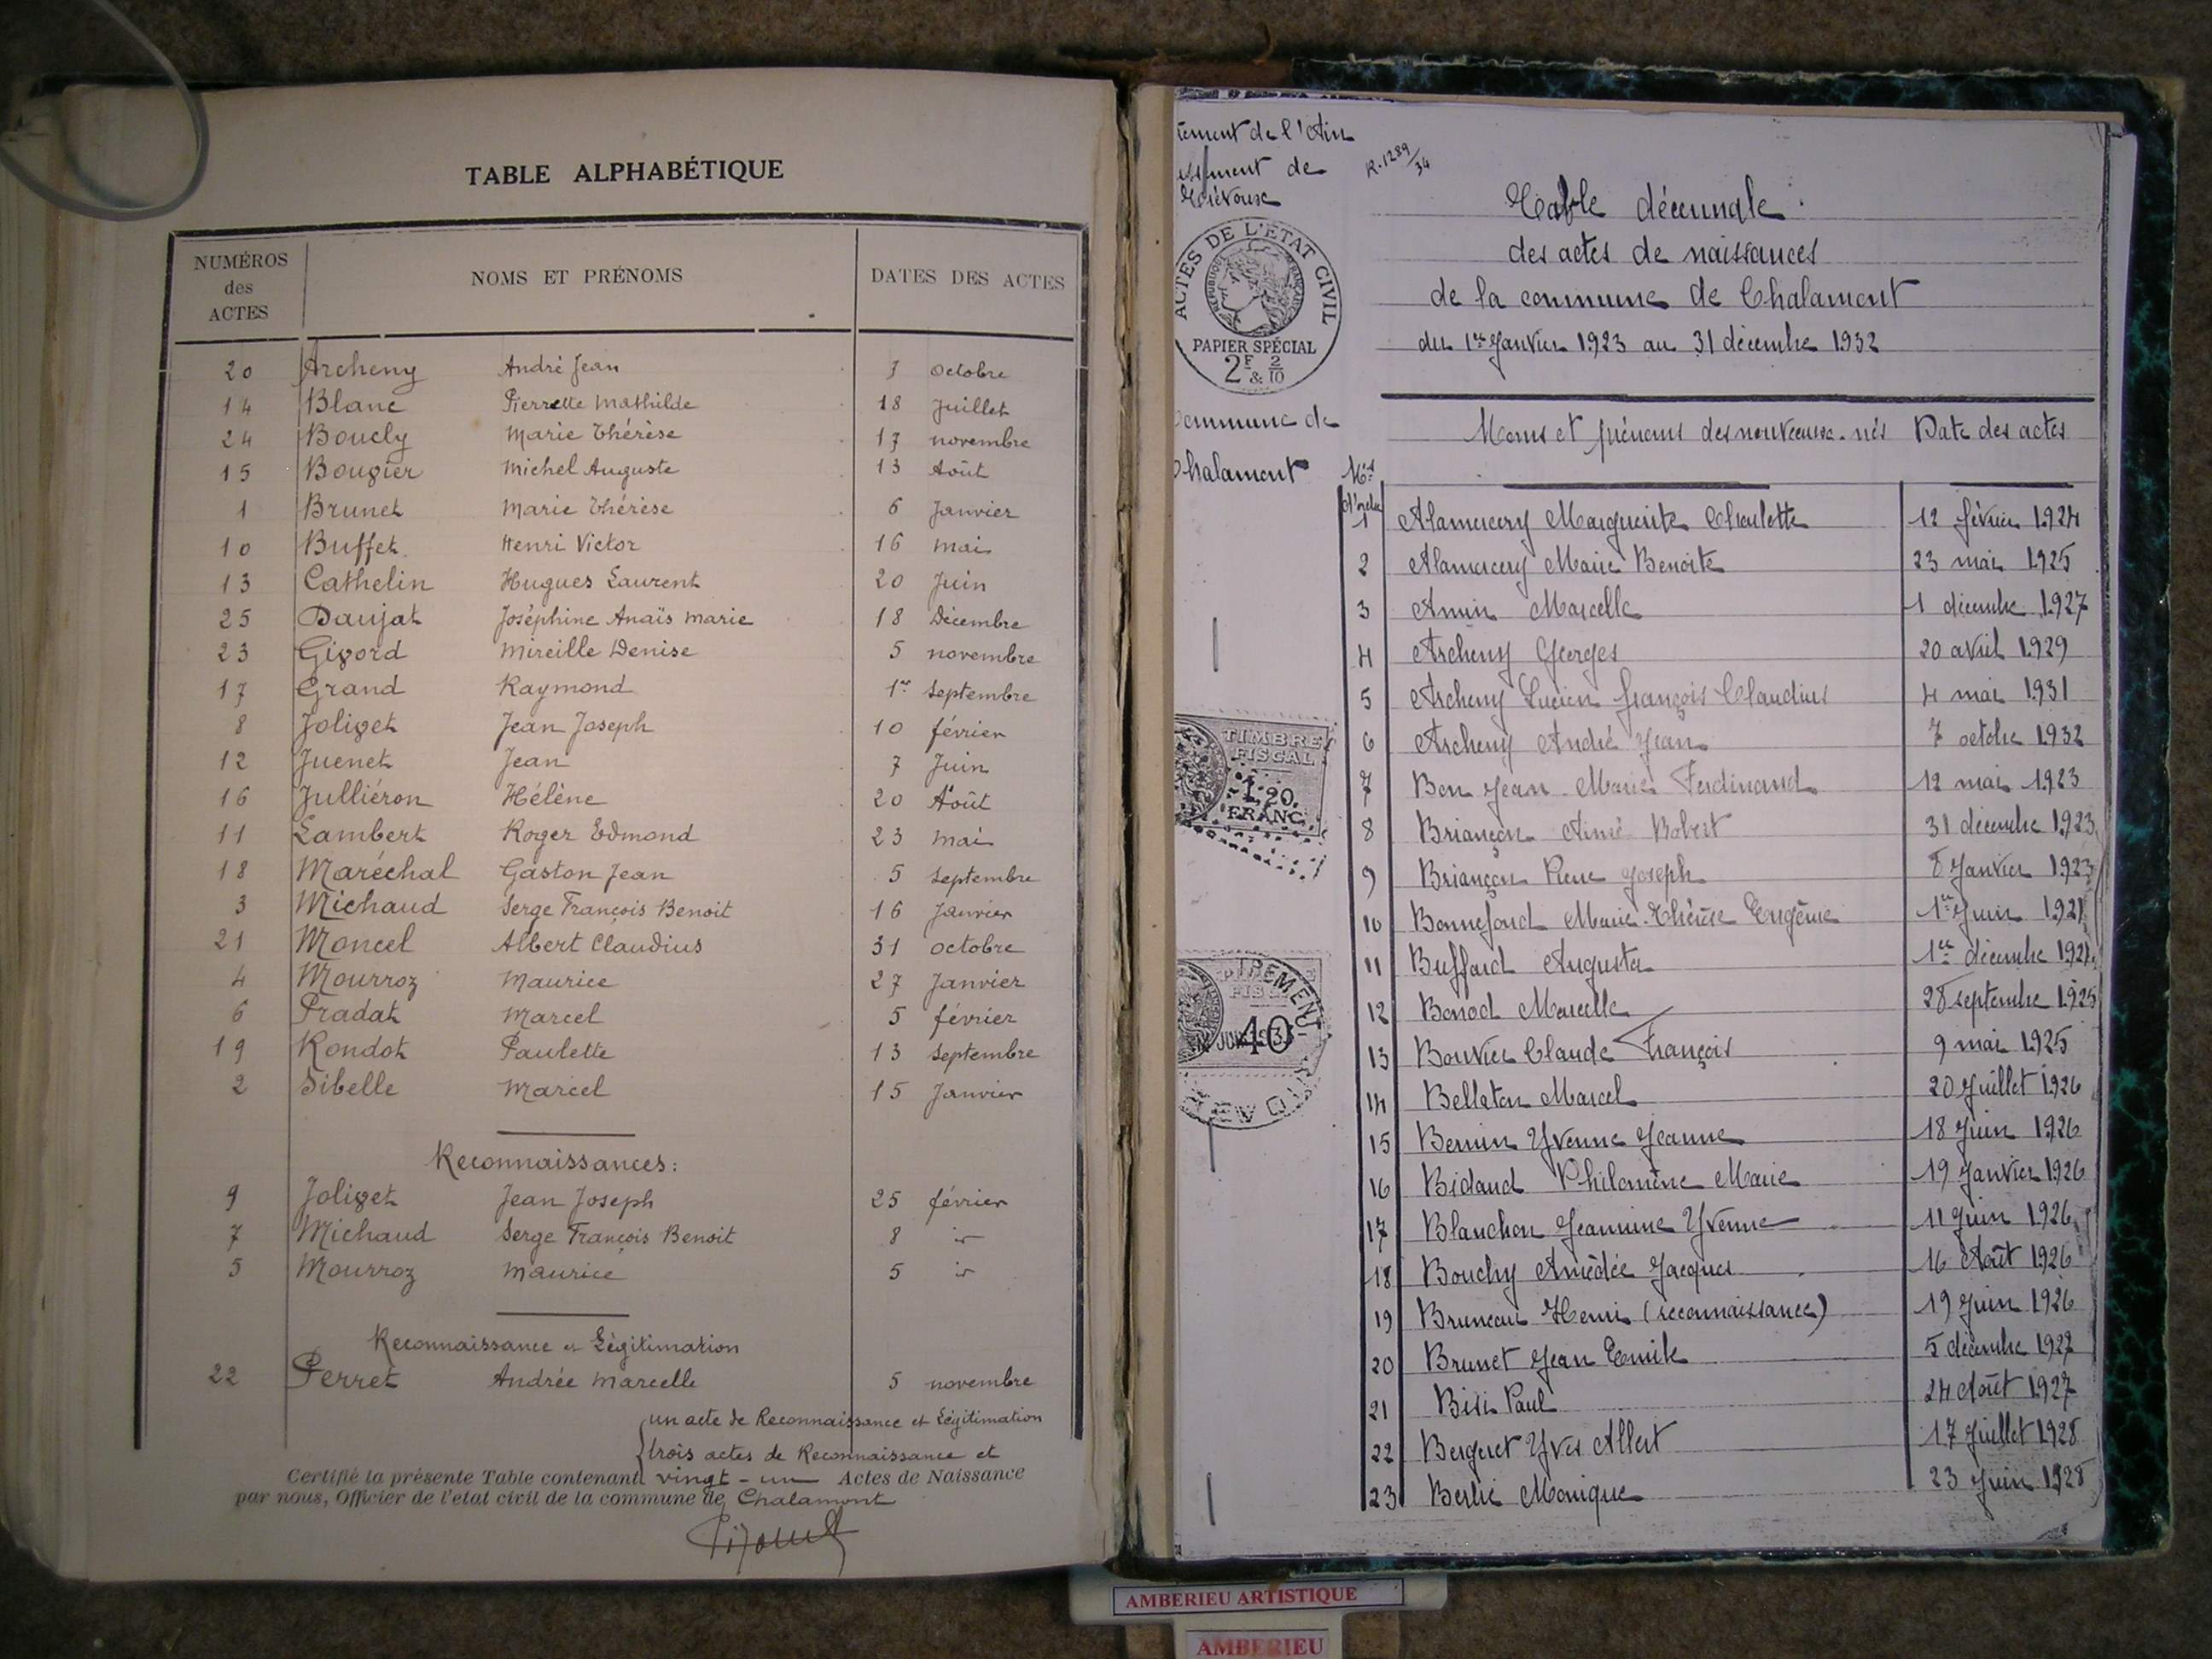 TABLE ALPHABÉTIQUE
NUMÉROS des ACTES NOMS ET PRÉNOMS DATES DES ACTES
20 Archeny André Jean 7 Octobre
14 Blanc Pierrette Mathilde 18 Juillet
24 Boucly Marie Thérèse 17 novembre
15 Bougier Michel Auguste 13 Août
1 Brunet Marie Thérèse 6 Janvier
10 Buffet Henri Victor 16 mai
13 Cathelin Hugues Laurent 20 Juin
25 Daujat Joséphine Anaïs Marie 18 Décembre
23 Givord Mireille Denise 5 novembre
17 Grand Raymond 1er Septembre
8 Jolivet Jean Joseph 10 février
12 Juenet Jean 7 Juin
16 Julliéron Hélène 20 Août
11 Lambert Roger Edmond 23 mai
18 Maréchal Gaston Jean 5 Septembre
3 Michaud Serge François Benoit 16 Janvier
21 Moncel Albert Claudius 31 octobre
4 Mourroz Maurice 27 Janvier
6 Pradat Marcel 5 février
19 Rondot Paulette 13 Septembre
2 Sibelle Marcel 15 Janvier
Reconnaissances:
9 Jolivet Jean Joseph 25 février
7 Michaud Serge François Benoit 8
5 Mourroz Maurice 5
Reconnaissance et Légitimation
22 Perret Andrée Marcelle 5 novembre
un acte de Reconnaissance et Légitimation
trois actes de Reconnaissance et
Certifié la présente Table contenant vingt-un Actes de Naissance
par nous, Officier de l'état civil de la commune de Chalamont
tement de l'Ain
ssement de
Trévoux
R. 1289/34
ACTES DE L'ETAT CIVIL
REPUBLIQUE FRANÇAISE
PAPIER SPÉCIAL
2F & 2/10
Commune de
Chalamont
TIMBRE FISCAL
1.20
FRANC
40
Table décennale
des actes de naissances
de la commune de Chalamont
du 1er Janvier 1923 au 31 décembre 1932
Nos d'ordre Noms et prénoms des nouveaux-nés Date des actes
1 Alamercery Marguerite Charlotte 12 février 1924
2 Alamercery Marie Benoite 23 mai 1925
3 Amin Marcelle 1 décembre 1927
4 Archeny Georges 20 avril 1929
5 Archeny Lucien François Claudius 4 mai 1931
6 Archeny André Jean 7 octobre 1932
7 Bon Jean-Marie Ferdinand 12 mai 1923
8 Briançon Aimé Robert 31 décembre 1923
9 Briançon Pierre Joseph 8 Janvier 1923
10 Bonnefond Marie-Thérèse Eugénie 1er Juin
11 Buffard Augusta 1er décembre
12 Bonod Marcelle 28 septembre 1925
13 Bouvier Claude François 9 mai 1925
14 Bellaton Marcel 20 Juillet 1926
15 Bernin Yvonne Jeanne 18 Juin 1926
16 Bidaud Philomène Marie 19 Janvier 1926
17 Blanchon Jeannine Yvonne 11 Juin 1926
18 Bouchy Amédée Jacques 16 Août 1926
19 Bruneau Henri (reconnaissance) 19 Juin 1926
20 Brunet Jean Emile 5 décembre 1927
21 Paul 24 Août 1927
22 Berguet Yves Albert 17 Juillet 1928
23 Berlie Monique 23 Juin 1928
AMBERIEU ARTISTIQUE
AMBERIEU